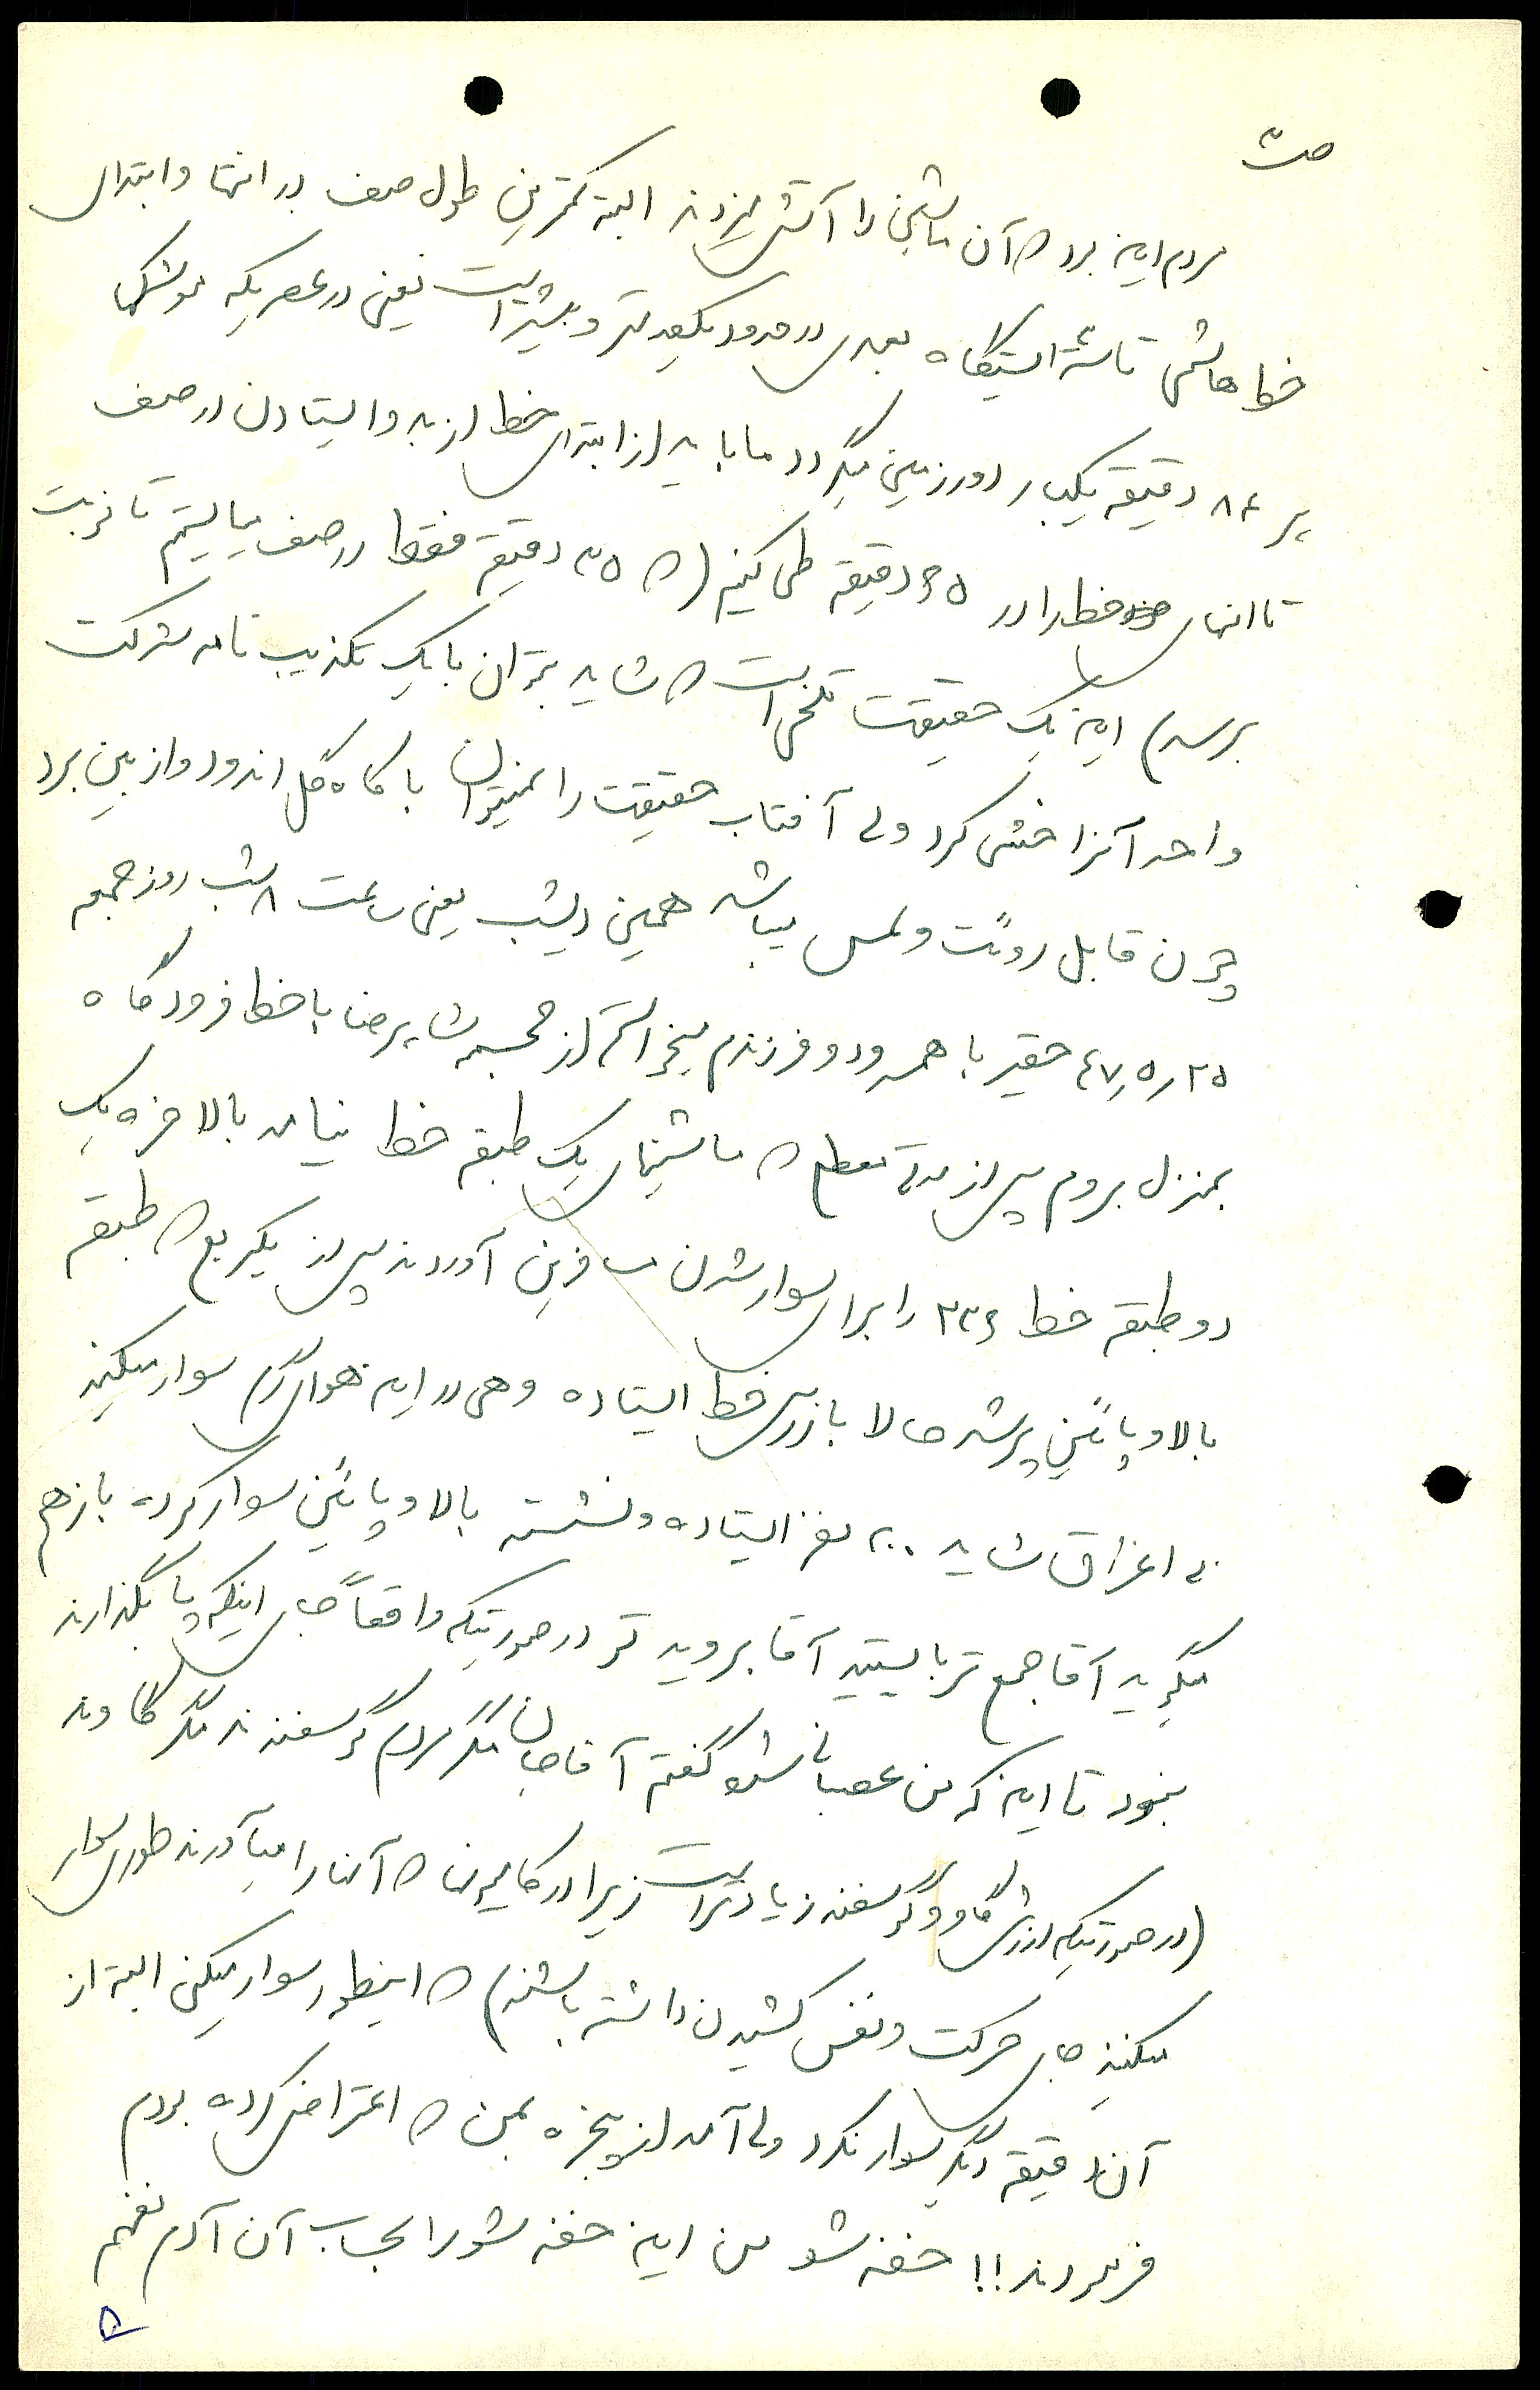 ص۳
مردم این بود که آن ماشین را آتش میزدند البته کمترین طول صف در انتها و ابتدای
خط هاشمی تا سه ایستگاه بعدی در حدود یکصد متر و بیشتر است یعنی در عصریکه موشکها
هر ۸۴ دقیقه یکبار دور زمین میگردد ما باید از ابتدای خط ازبدو ایستادن در صف
تا انتهای خط را در ۶۵ دقیقه طی کنیم (که ۳۵ دقیقه فقط در صف میایستیم تا نوبت
برسد) این یک حقیقت تلخی است که شاید بتوان با یک تکذیب نامه شرکت
واحد آنرا خنثی کرد ولی آفتاب حقیقت را نمیتوان با کاه گل اندود و از بین برد
چون قابل رویت و لمس میباشد همین دیشب یعنی ساعت ۸ شب روز جمعه
۴۷٫۵٫۲۵ حقیر با همسر و دو فرزندم میخواستم از مجسمه شاهرضا با خط فرودگاه
بمنزل بروم پس از مدتی معطلی که ماشینهای یک طبقه خط نیامد بالاخره یک
دو طبقه خط ۳۳۶ را برای سوار شدن مسافرین آوردند پس از یکربع که طبقه
بالا و پائین پر شد حالا بازرس خط ایستاده و هی در این هوای گرم سوار میکند
بی اغراق شاید ۲۰۰ نفر ایستاده و نشسته بالا و پائین سوار کرده باز هم
میگوید آقا جمع تر بایستید آقا بروید تو در صورتیکه واقعاً جای اینکه پا بگذارند
نبود تا این که من عصبانی شده گفتم آقا جان مگر مردم گوسفندند مگر گاوند
(در صورتیکه ارزش گاو و گوسفند زیادتر است زیرا در کامیون که آنها را میآورند طوری سوار
میکنند جای حرکت و نفس کشیدن داشته باشند) که اینطور سوار میکنی البته از
آن دقیقه دیگر سوار نکرد ولی آمد از پنجره بمن که اعتراض کرده بودم
فرمودند!! خفه شو من این خفه شو را بحساب آن آدم نفهم